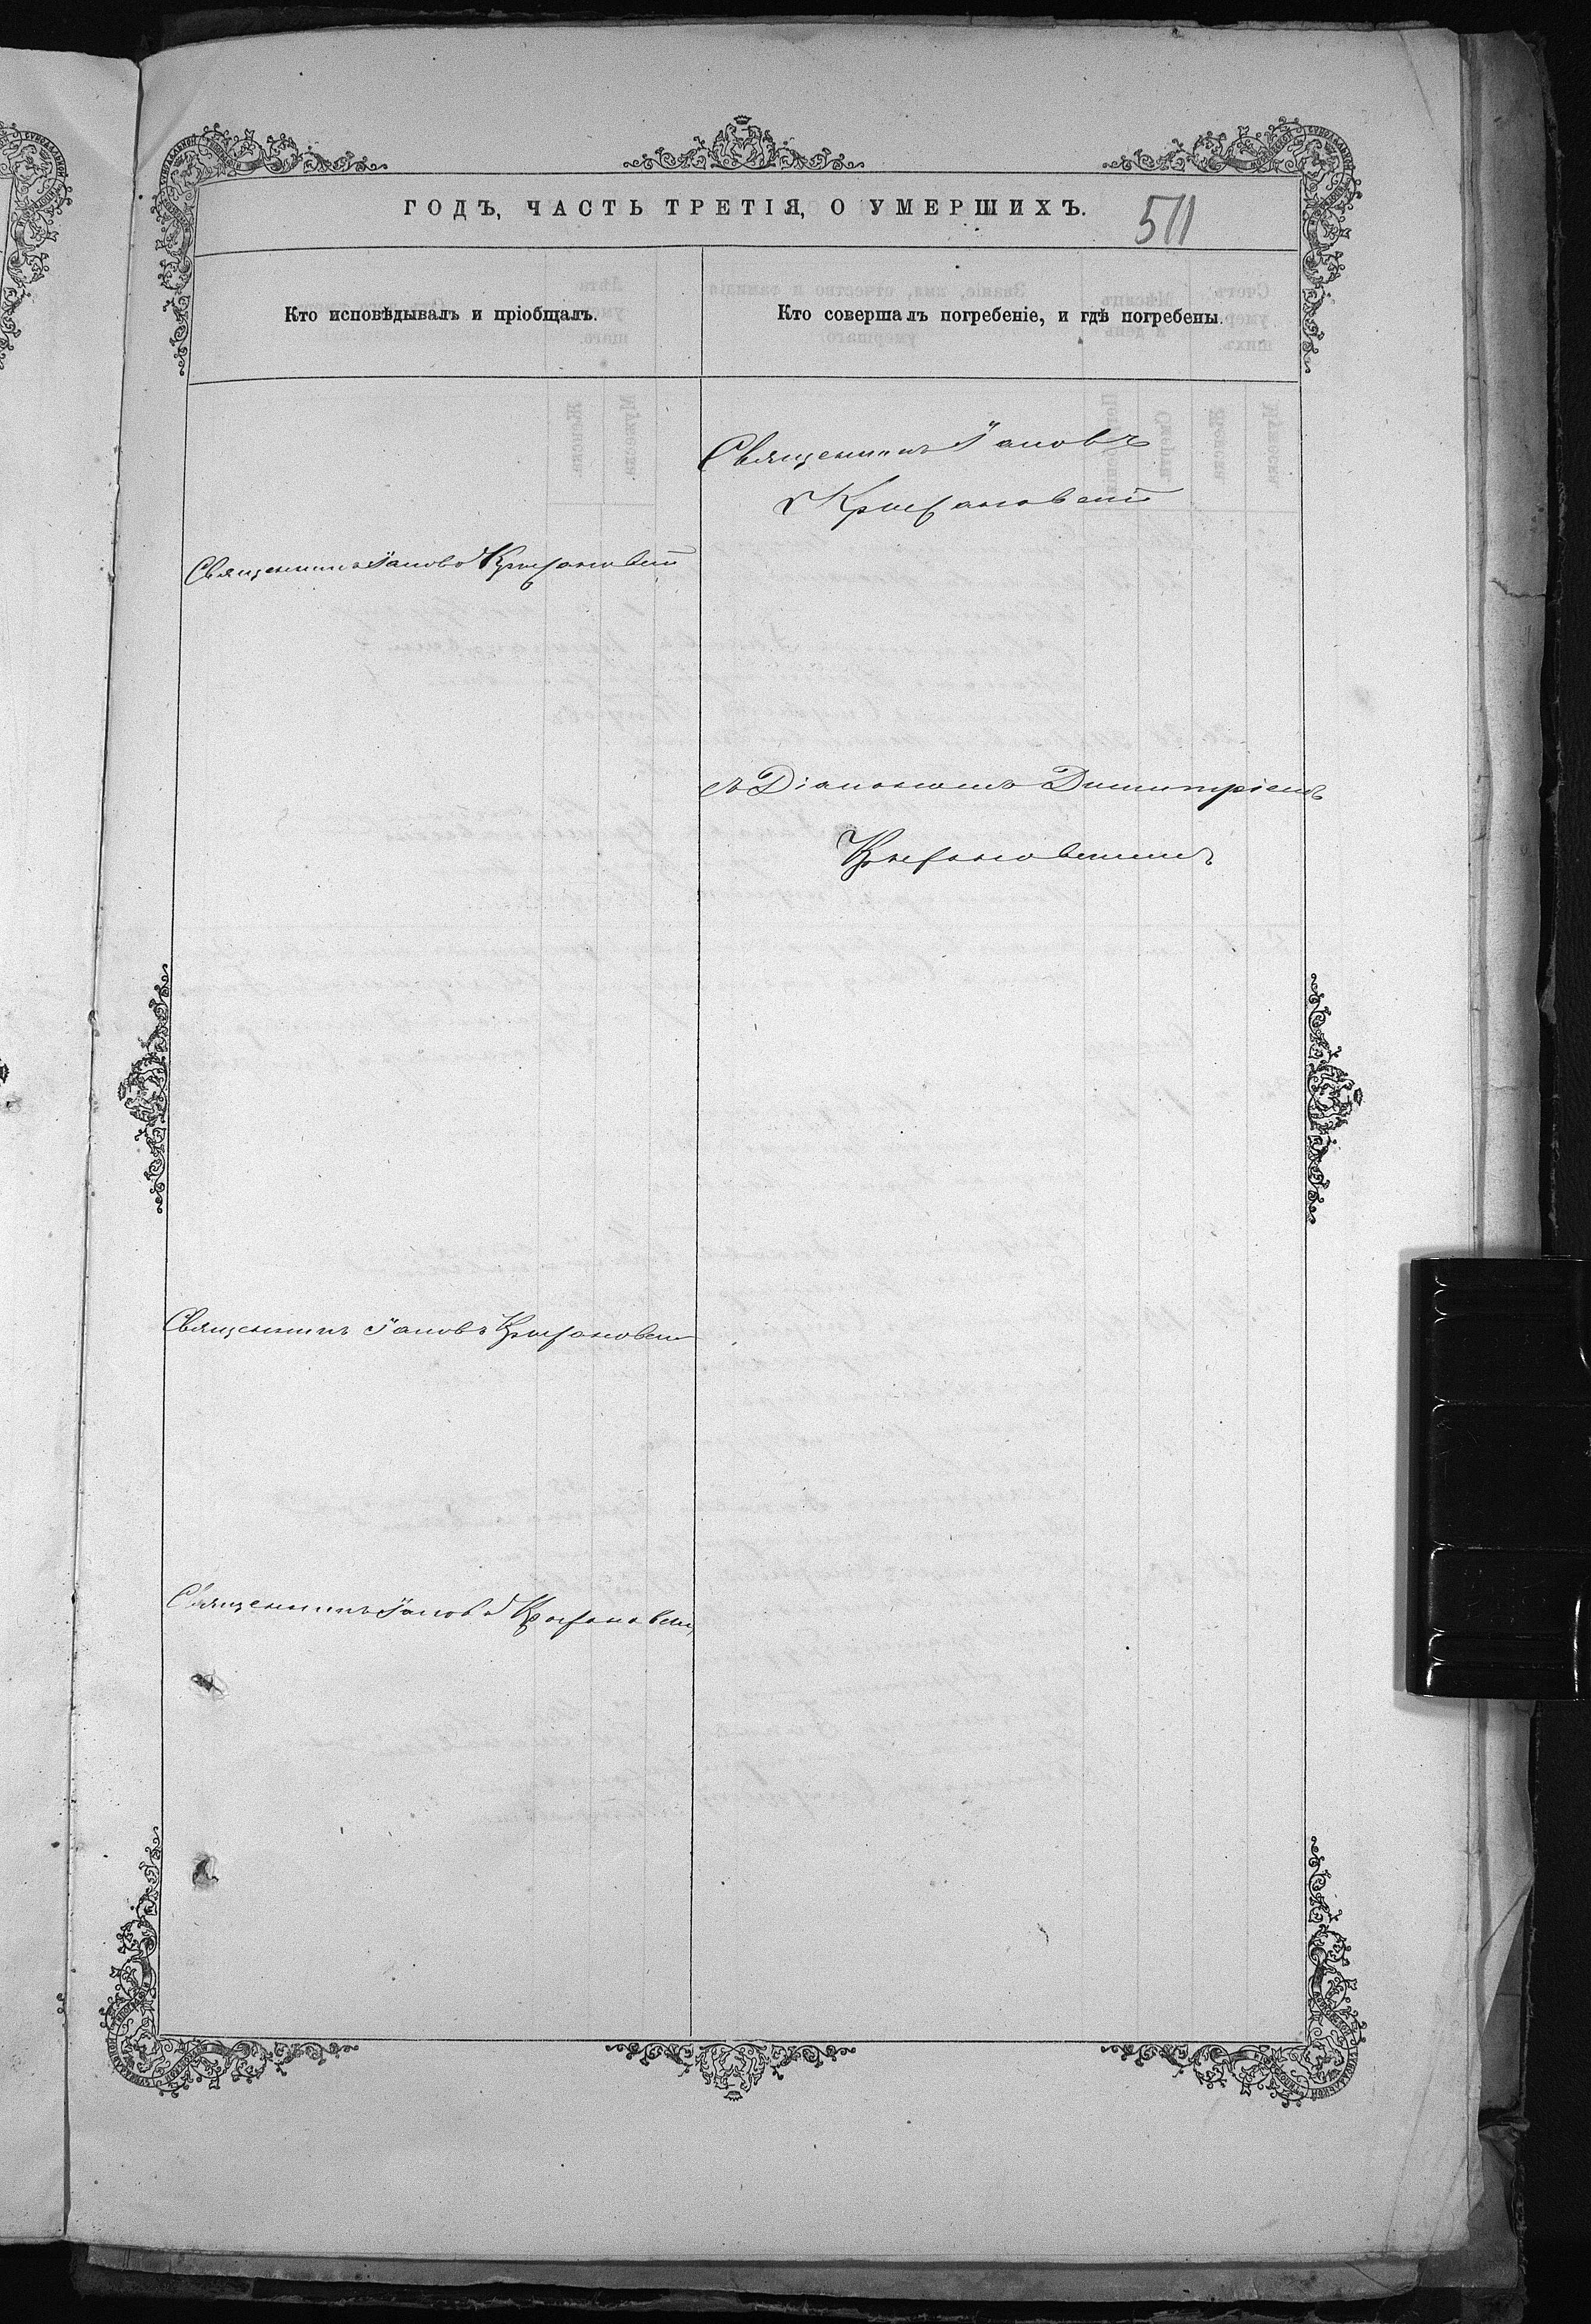 ГОДЪ, ЧАСТЬ ТРЕТІЯ, О УМЕРШИХЪ.
511
Кто исповѣдывалъ и пріобщалъ.
Кто совершалъ погребеніе, и гдѣ погребены.
Священникъ Іаковъ
Крыжановскій
Священникъ Іаковъ Крыжановскій
съ Діакономъ Димитріемъ
Крыжановскимъ
Священникъ Іаковъ Крыжановскій
Священникъ Іаковъ Крыжановскій